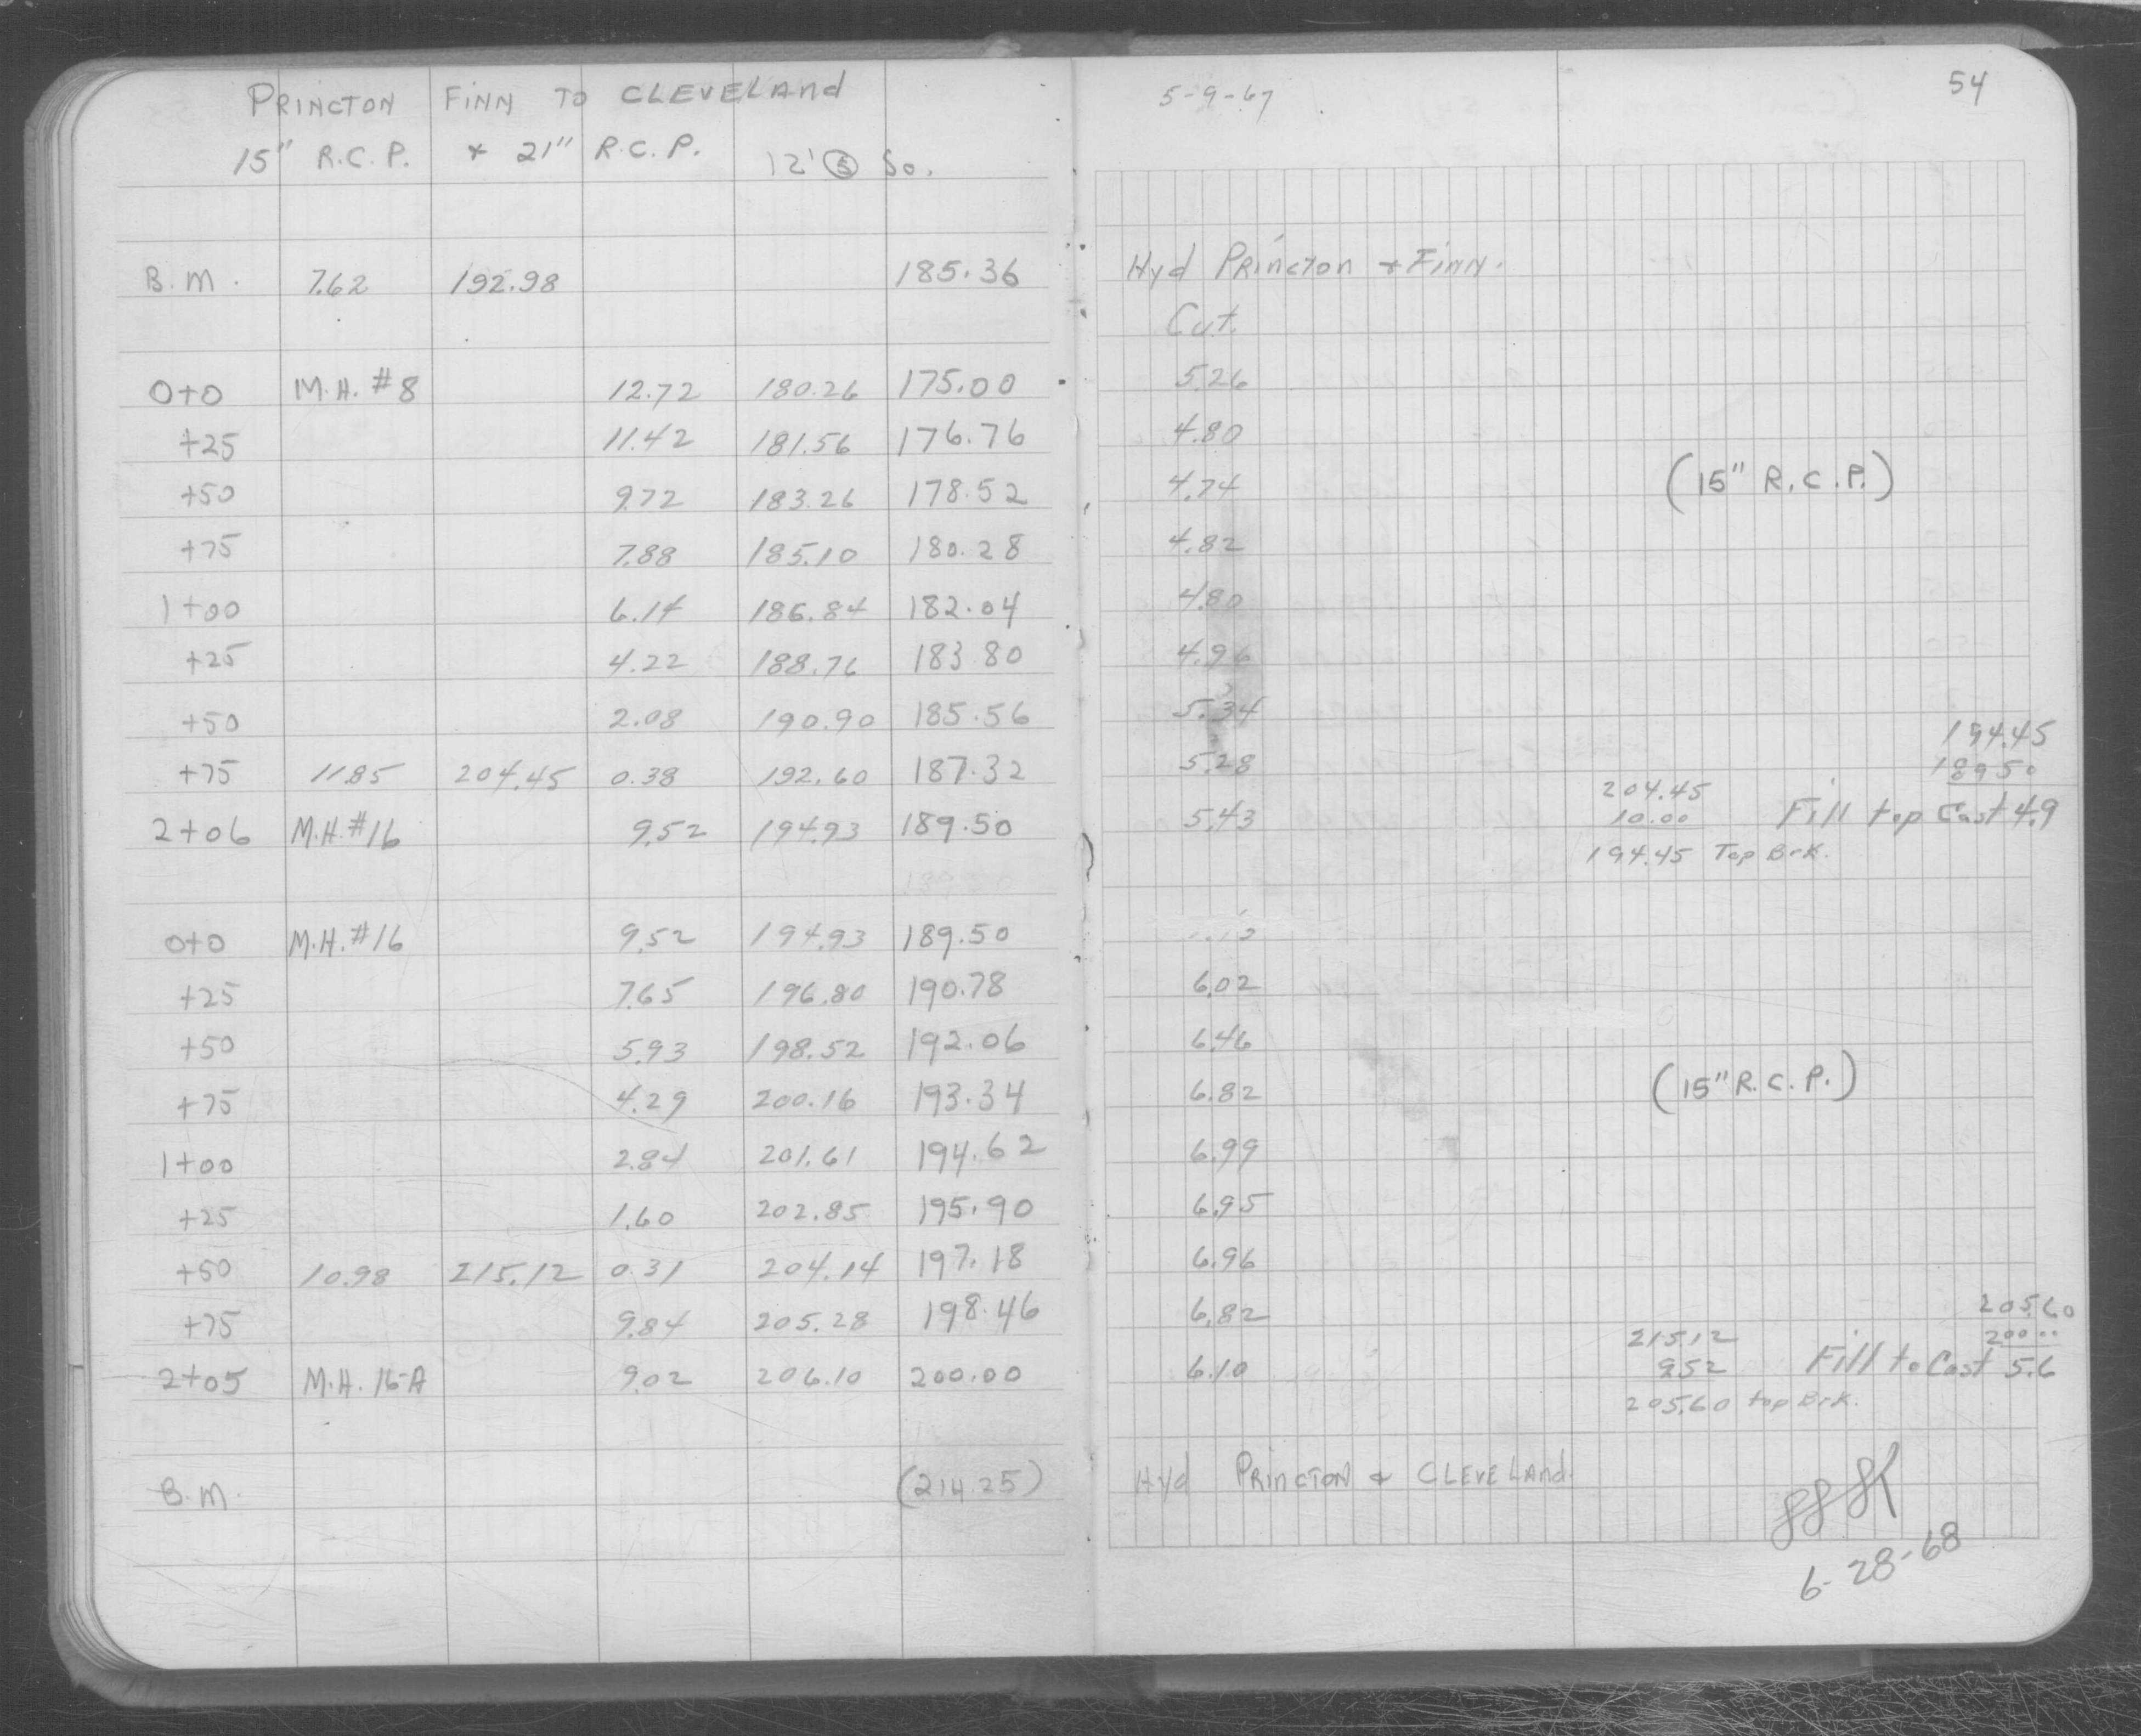 PRINCTON FINN TO CLEVELAnd
15" R.C.P. & 21" R.C.P. 12' Ⓢ So.
B.M. 7.62 192.98 185.36
0+0 M.H. #8 12.72 180.26 175.00
+25 11.42 181.56 176.76
+50 9.72 183.26 178.52
+75 7.88 185.10 180.28
1+00 6.14 186.84 182.04
+25 4.22 188.76 183.80
+50 2.08 190.90 185.56
+75 11.85 204.45 0.38 192.60 187.32
2+06 M.H.#16 9.52 194.93 189.50
0+0 M.H.#16 9.52 194.93 189.50
+25 7.65 196.80 190.78
+50 5.93 198.52 192.06
+75 4.29 200.16 193.34
1+00 2.84 201.61 194.62
+25 1.60 202.85 195.90
+50 10.98 215.12 0.31 204.14 197.18
+75 9.84 205.28 198.46
2+05 M.H. 16-A 9.02 206.10 200.00
B.M. (214.25)
5-9-67 54
Hyd Princton & Finn.
Cut.
5.26
4.80
4.74 (15" R.C.P.)
4.82
4.80
4.96
5.34
194.45
5.28 189.50
204.45
5.43 10.00 Fill top Cast 4.9
194.45 Top Brk.
6.02
6.46
6.82 (15" R.C.P.)
6.99
6.95
6.96
6.82 205.60
215.12 200.00
6.10 9.52 Fill to Cast 5.6
205.60 top Brk.
Hyd PRINCTON & CLEVELAnd.
6-28-68